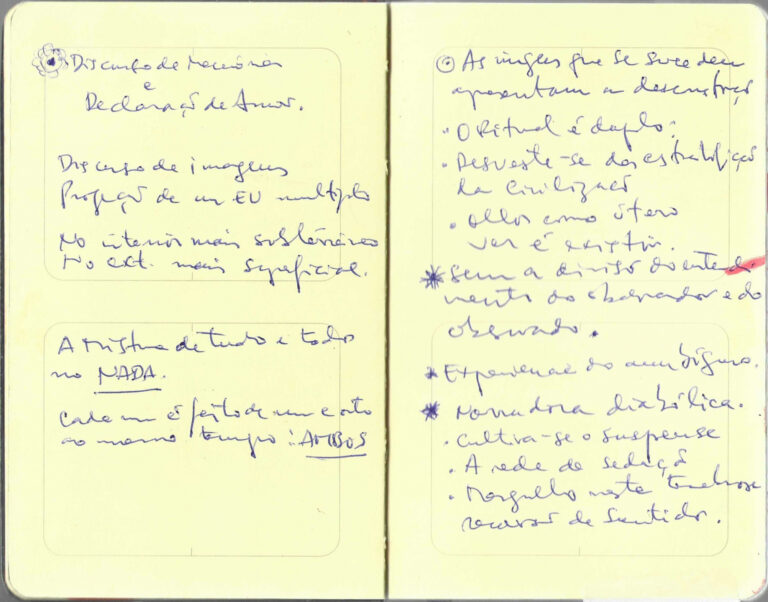 Discurso de Memórias
e
Declaração de Amor.
Discurso de imagens
Projeção de um EU multiplo
No interior mais subterrâneo
No ext. mais superficial.
A mistura de tudo e todos
no NADA.
Cada um é feito de um e outo
ao mesmo tempo: AMBOS
As imgens que se sucedem
apresentam a desconstruçã
O Ritual é duplo:
Desveste-se da estratificaçã
da Civilizaçã
olhos como útero
ver é existir.
Sem a divisã do entendi
mento do observador e do
observado.
Experiencia do ambíguo.
Narradora diabólica.
Cultiva-se o suspense
A rede de seduçã
Mergulho nesta tenebrosa
de Sentido.